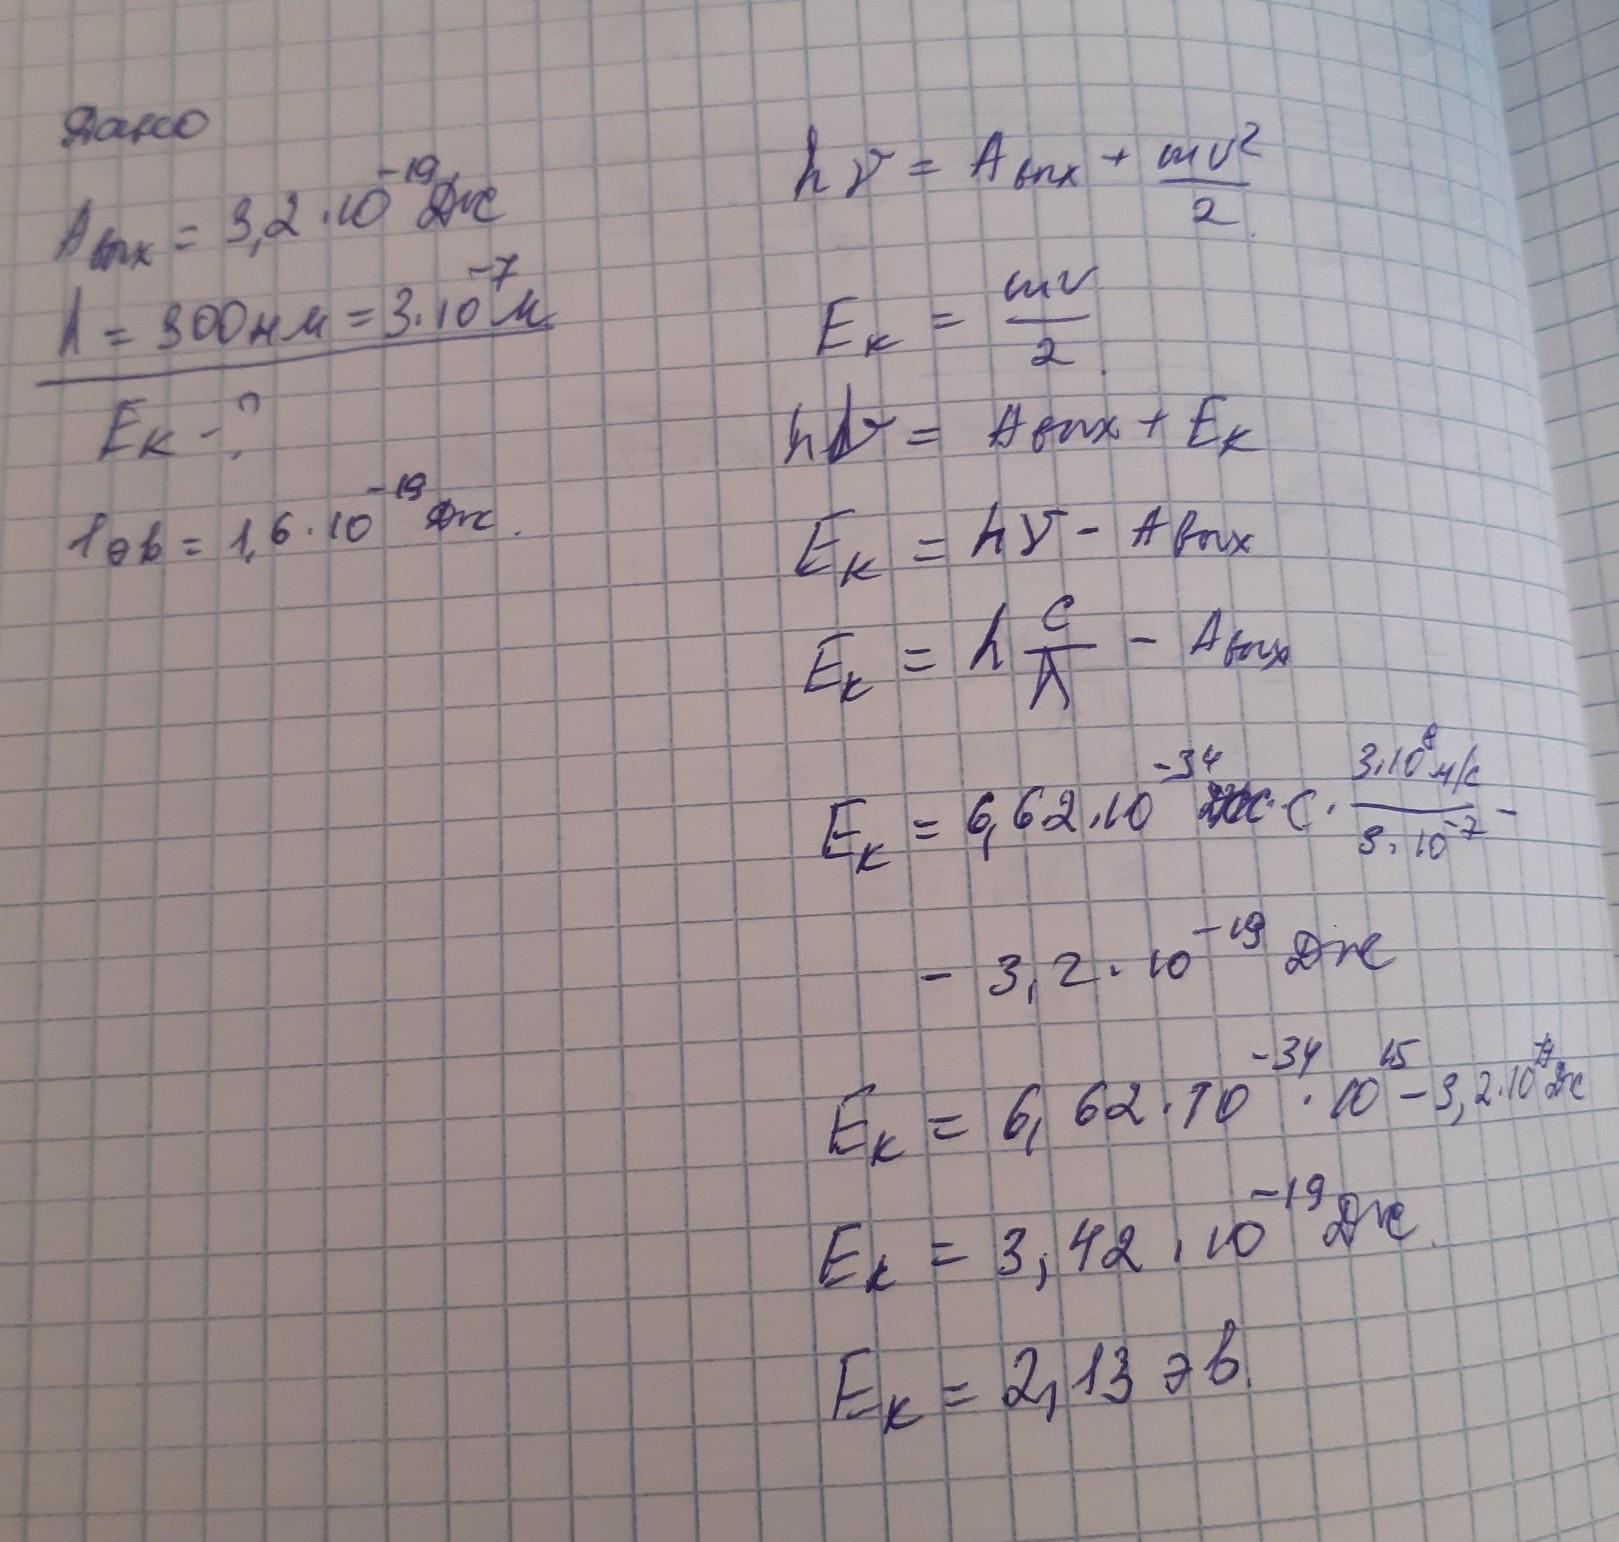 Дано
Aвых = 3,2·10⁻¹⁹ Дж
λ = 300 нм = 3·10⁻⁷ м
Eк - ?
1 эв = 1,6·10⁻¹⁹ Дж.
hν = Aвых + mv²/2
Eк = mv/2
hν = Aвых + Eк
Eк = hν - Aвых
Eк = h c/λ - Aвых
Eк = 6,62·10⁻³⁴ Дж·с · 3·10⁸ м/с / 3·10⁻⁷ -
- 3,2·10⁻¹⁹ Дж
Eк = 6,62·10⁻³⁴ · 10¹⁵ - 3,2·10⁻¹⁹ Дж
Eк = 3,42·10⁻¹⁹ Дж.
Eк = 2,13 эв.